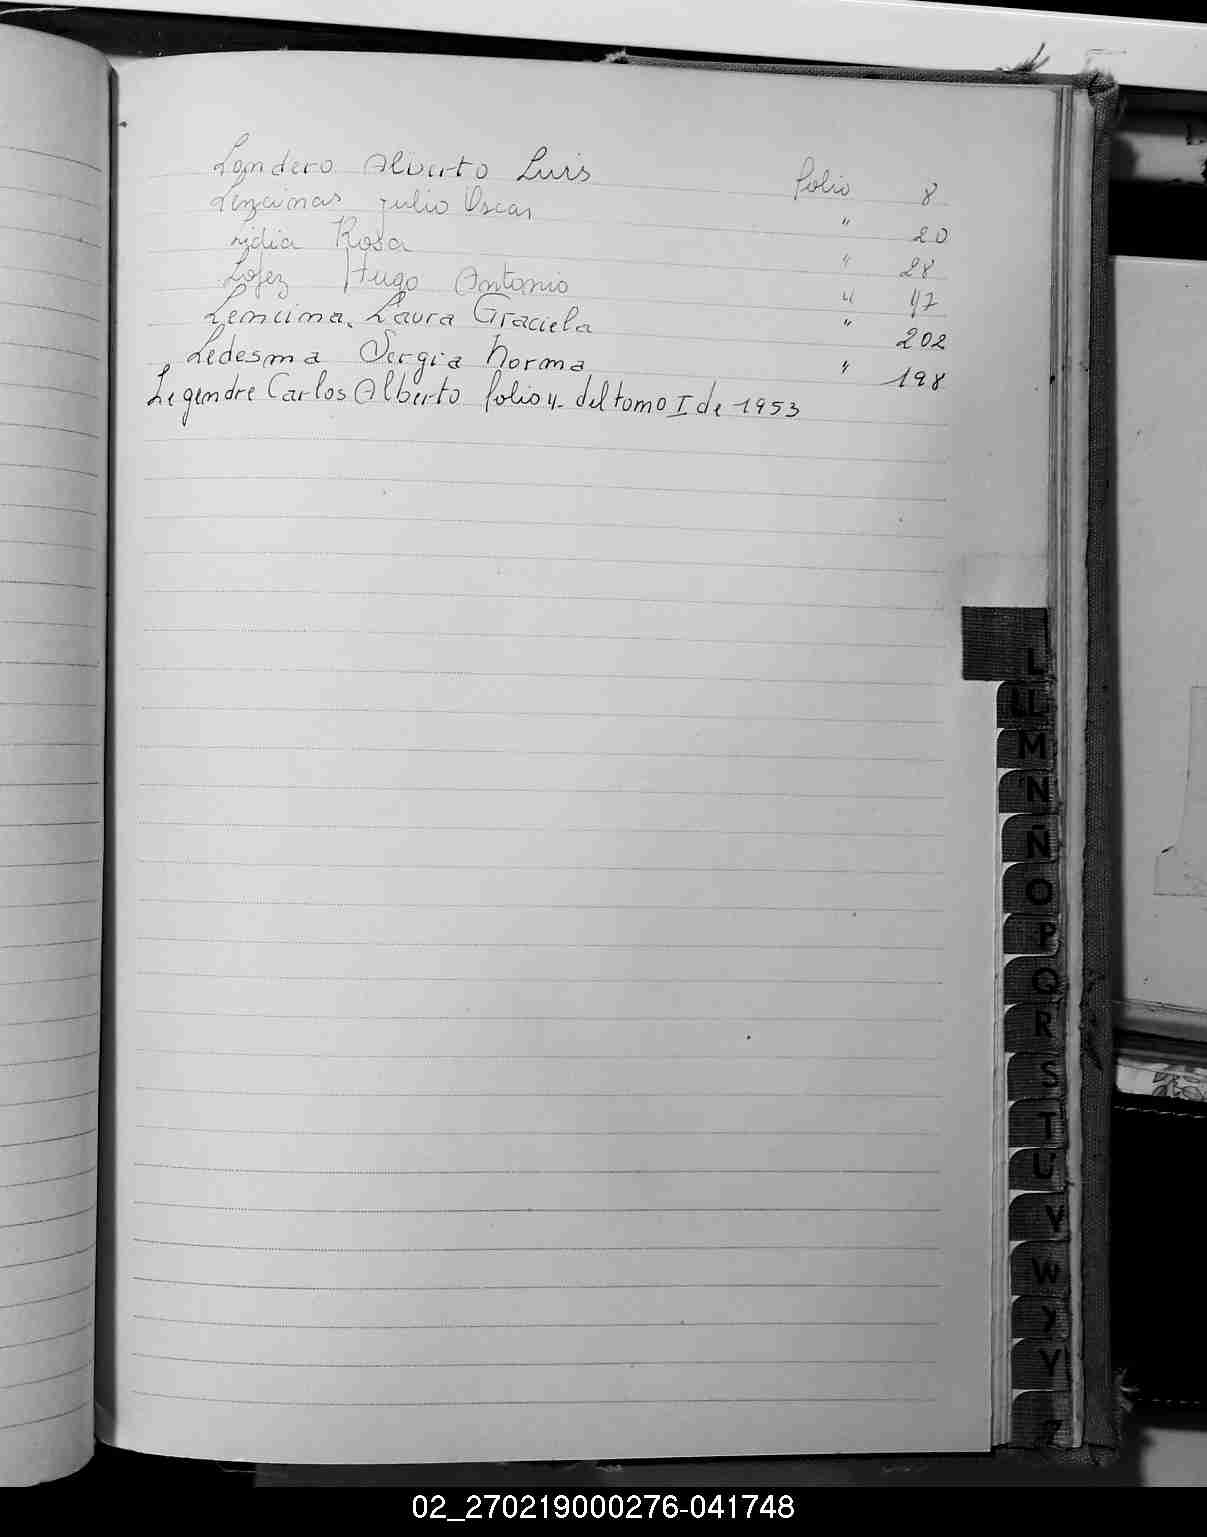 Landero Alberto Luis folio 8
Lezcinas Julio Oscar " 20
Lidia Rosa " 28
Lopez Hugo Antonio " 47
Lemcima, Laura Graciela " 202
Ledesma Sergia Norma " 198
Legendre Carlos Alberto folio 4. del tomo I de 1953
L
LL
M
N
Ñ
O
P
Q
R
S
T
U
V
W
Y
Z
02_270219000276-041748